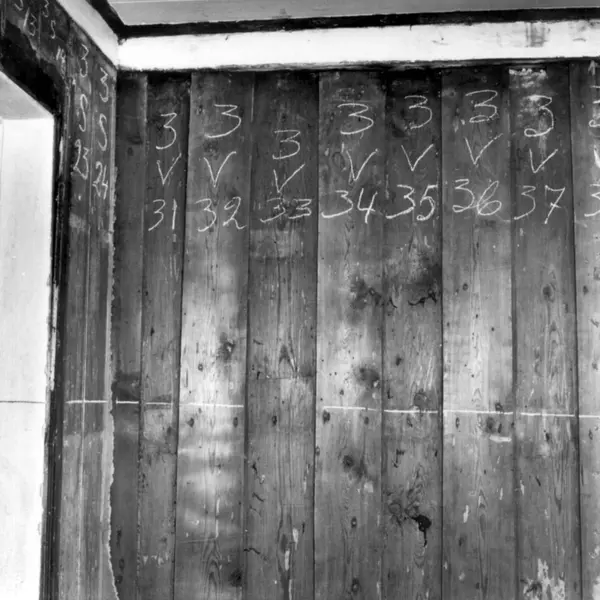 3 3 3 3 3 3 3 3 3
S S V V V V V V V
23 24 31 32 33 34 35 36 37